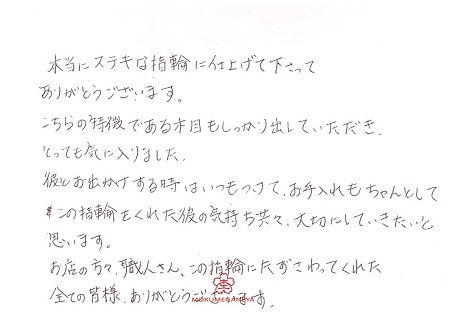 本当にステキな指輪に仕上げて下さって
ありがとうございます。
こちらの特徴である木目もしっかり出していただき、
とっても気に入りました。
彼とお出かけする時はいつもつけて、お手入れもちゃんとして
この指輪をくれた彼の気持ち共々、大切にしていきたいと
思います。
お店の方々、職人さん、この指輪にたずさわってくれた
全ての皆様、ありがとうございます。
MOKUMEGANEYA